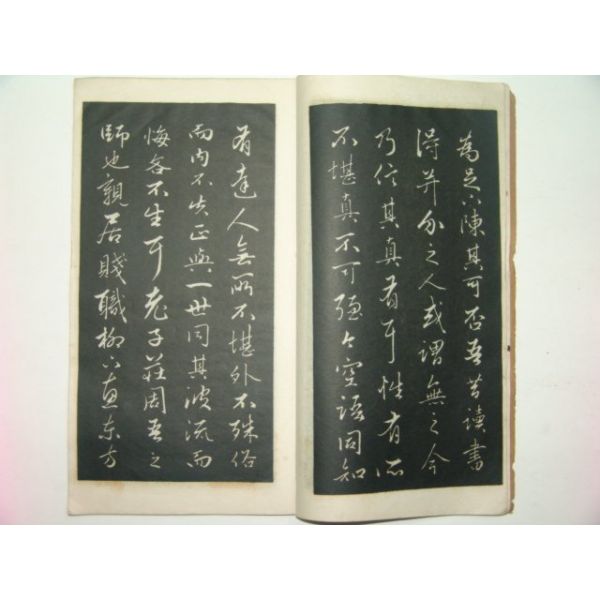 為足下陳其可否吾昔讀書
得并介之人或謂無之今
乃信其真有耳性有所
不堪真不可強今空語同知
有達人無所不堪外不殊俗
而內不失正與一世同其波流而
悔吝不生耳老子莊周吾之
師也親居賤職柳下惠東方